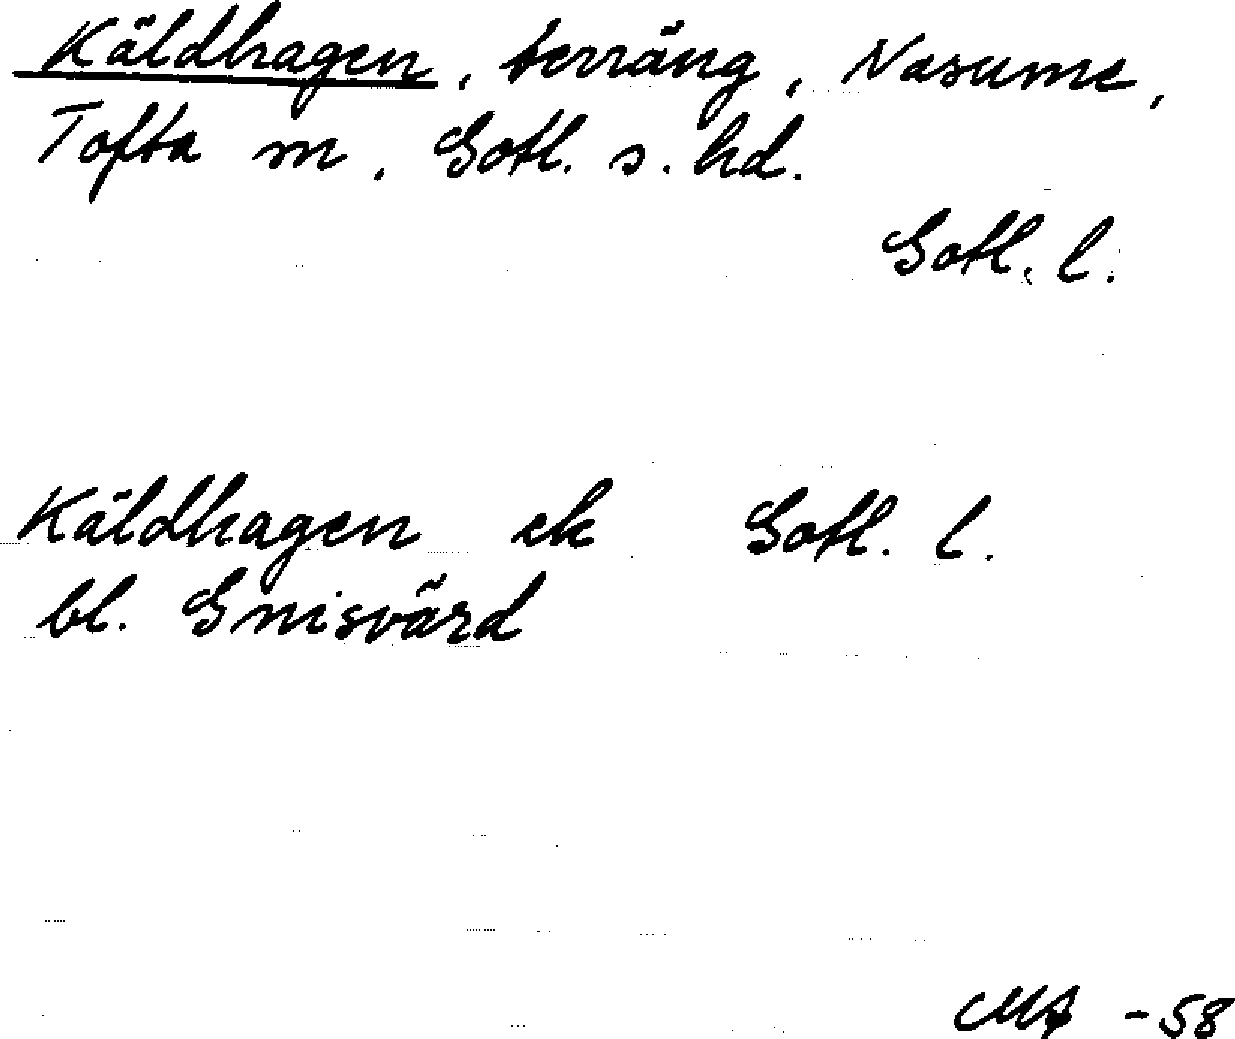 Käldhagen, terräng, Nasume,
Tofta m, Gotl. s. hd.
Gotl. l.
Käldhagen ek Gotl. l.
bl. Gnisvärd
MA -58